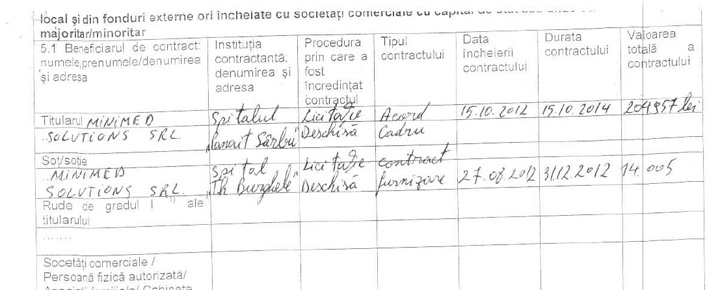 local și din fonduri externe ori încheiate cu societăți comerciale cu capital de stat sau unde
majoritar/minoritar
5.1 Beneficiarul de contract: numele,prenumele/denumirea și adresa
Instituția contractantă: denumirea și adresa
Procedura prin care a fost încredințat contractul
Tipul contractului
Data încheierii contractului
Durata contractului
Valoarea totală a contractului
Titularul MINIMED Spitalul Licitație Acord 15.10.2012 15.10.2014 204957 lei
SOLUTIONS SRL "Panait Sârbu" Deschisă Cadru
Soț/soție
MINIMED Spital Licitație contract
SOLUTIONS SRL. "Th Burghele" Deschisă furnizare 27.08.2012 31.12.2012 14.005
Rude de gradul I 1) ale
titularului
........
Socetăți comerciale /
Persoană fizică autorizată/